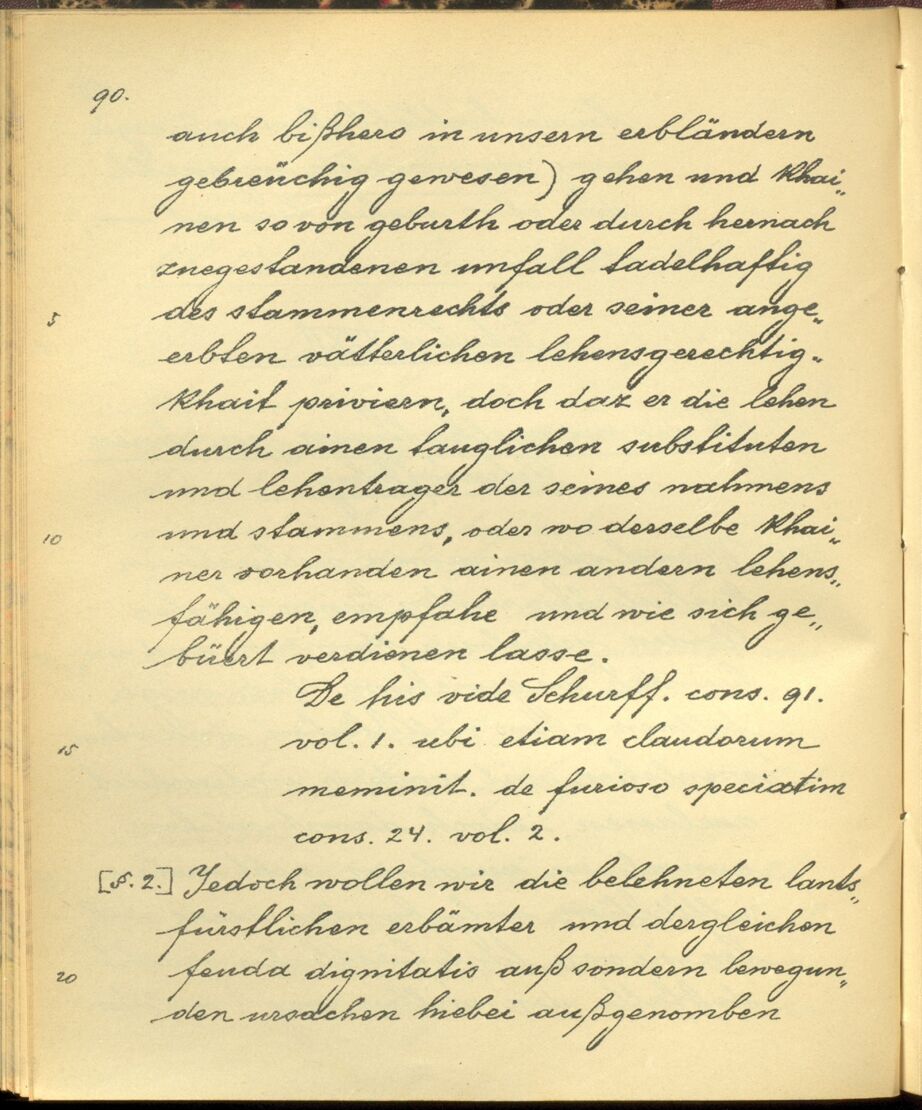 90.
auch bißhero in unsern erbländern
gebreüchig gewesen) gehen und khai„
nen so von geburth oder durch hernach
zuegestandenen unfall tadelhaftig
5 des stammenrechts oder seiner ange„
erbten vätterlichen lehensgerechtig„
khait priviern, doch daz er die lehen
durch ainen tauglichen substituten
und lehentrager der seines nahmens
10 und stammens, oder wo derselbe khai„
ner vorhanden ainen andern lehens„
fähigen, empfahe und wie sich ge„
büert verdienen lasse.
De his vide Schurff. cons. 91.
15 vol. 1. ubi etiam claudorum
meminit. de furioso speciatim
cons. 24. vol. 2.
[§. 2.] Jedoch wollen wir die belehneten lants„
fürstlichen erbämter und dergleichen
20 feuda dignitatis auß sondern bewegun„
den ursachen hiebei außgenomben